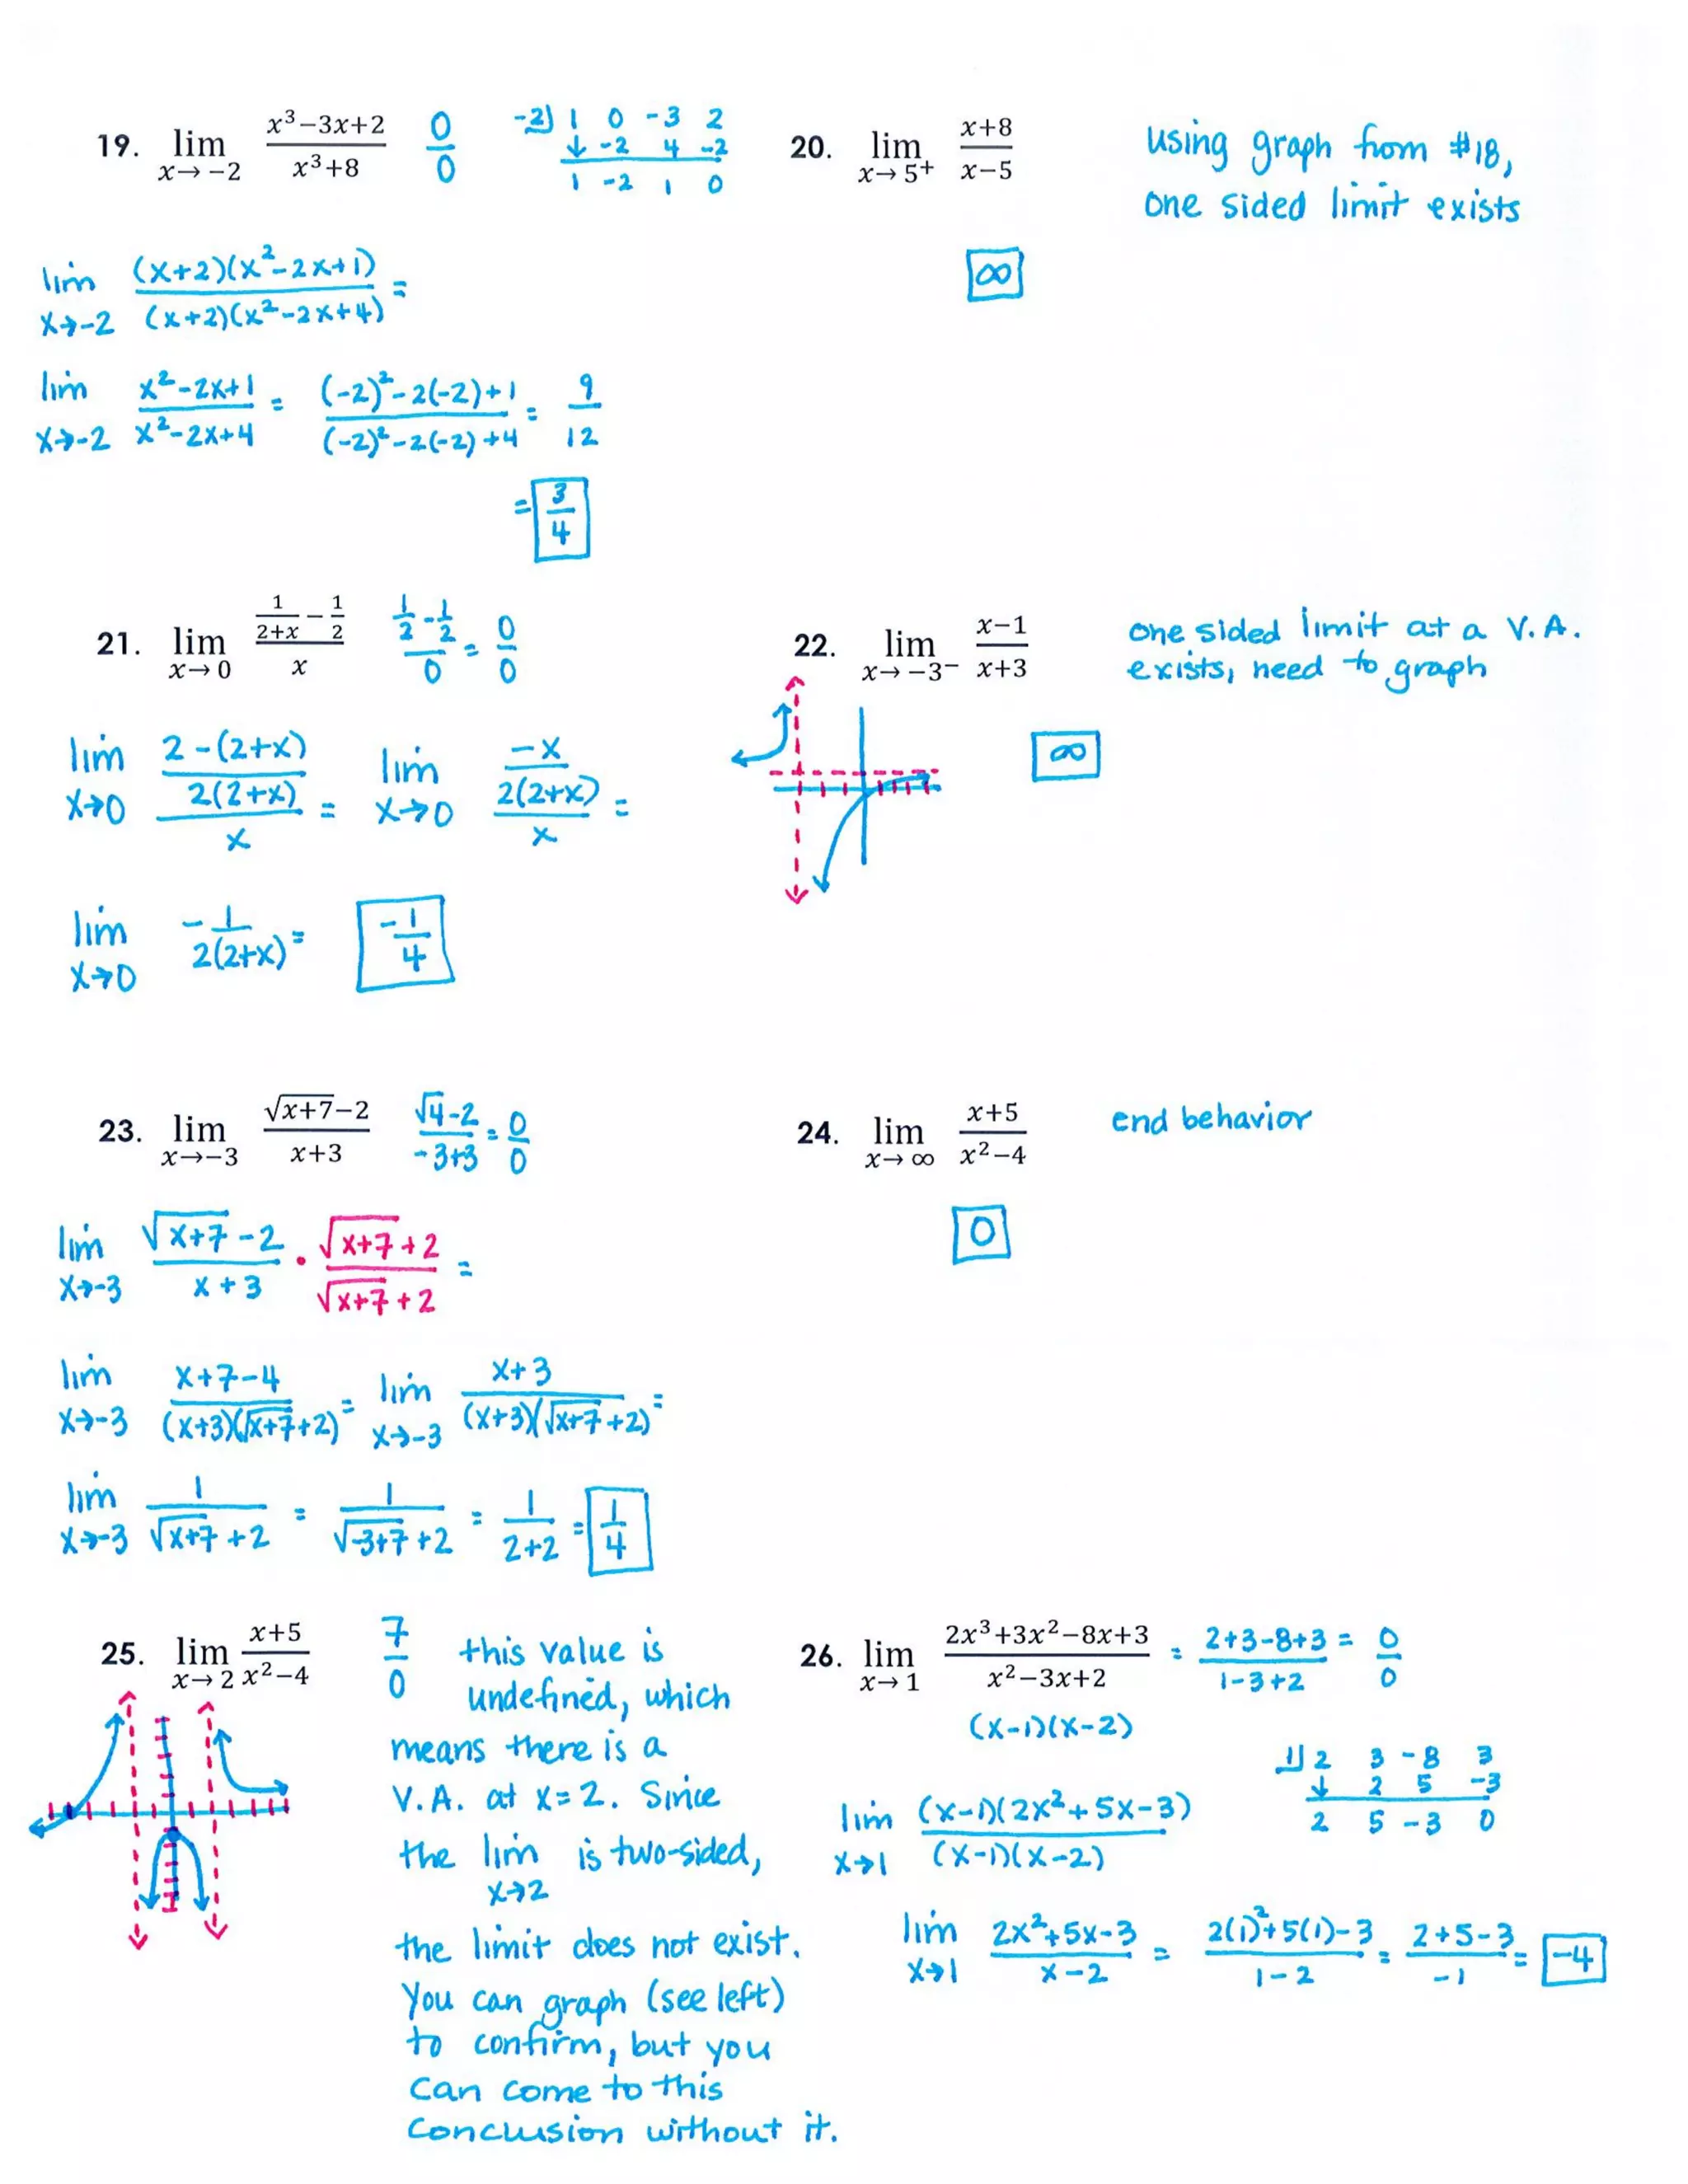 19. lim x→ -2 x³-3x+2 / x³+8 0/0 -2) 1 0 -3 2
↓ -2 4 -2
1 -2 1 0
lim x→-2 (x+2)(x²-2x+1) / (x+2)(x²-2x+4) =
lim x→-2 x²-2x+1 / x²-2x+4 = (-2)²-2(-2)+1 / (-2)²-2(-2)+4 = 9/12
= 3/4
20. lim x→ 5⁺ x+8 / x-5 using graph from #18,
one sided limit exists
∞
21. lim x→ 0 (1/(2+x) - 1/2) / x (1/2 - 1/2) / 0 = 0/0
lim x→0 (2-(2+x) / 2(2+x)) / x = lim x→0 (-x / 2(2+x)) / x =
lim x→0 -1 / 2(2+x) = -1/4
22. lim x→ -3⁻ x-1 / x+3 one sided limit at a V.A.
exists, need to graph
∞
23. lim x→-3 √x+7-2 / x+3 √4-2 / -3+3 = 0/0
lim x→-3 √x+7-2 / x+3 · √x+7+2 / √x+7+2 =
lim x→-3 x+7-4 / (x+3)(√x+7+2) = lim x→-3 x+3 / (x+3)(√x+7+2) =
lim x→-3 1 / √x+7+2 = 1 / √-3+7+2 = 1 / 2+2 = 1/4
24. lim x→ ∞ x+5 / x²-4 end behavior
0
25. lim x→ 2 x+5 / x²-4 7/0 this value is
undefined, which
means there is a
V.A. at x=2. Since
the lim x→2 is two-sided,
the limit does not exist.
You can graph (see left)
to confirm, but you
can come to this
conclusion without it.
26. lim x→ 1 2x³+3x²-8x+3 / x²-3x+2 = 2+3-8+3 / 1-3+2 = 0/0
(x-1)(x-2)
1) 2 3 -8 3
↓ 2 5 -3
2 5 -3 0
lim x→1 (x-1)(2x²+5x-3) / (x-1)(x-2)
lim x→1 2x²+5x-3 / x-2 = 2(1)²+5(1)-3 / 1-2 = 2+5-3 / -1 = -4